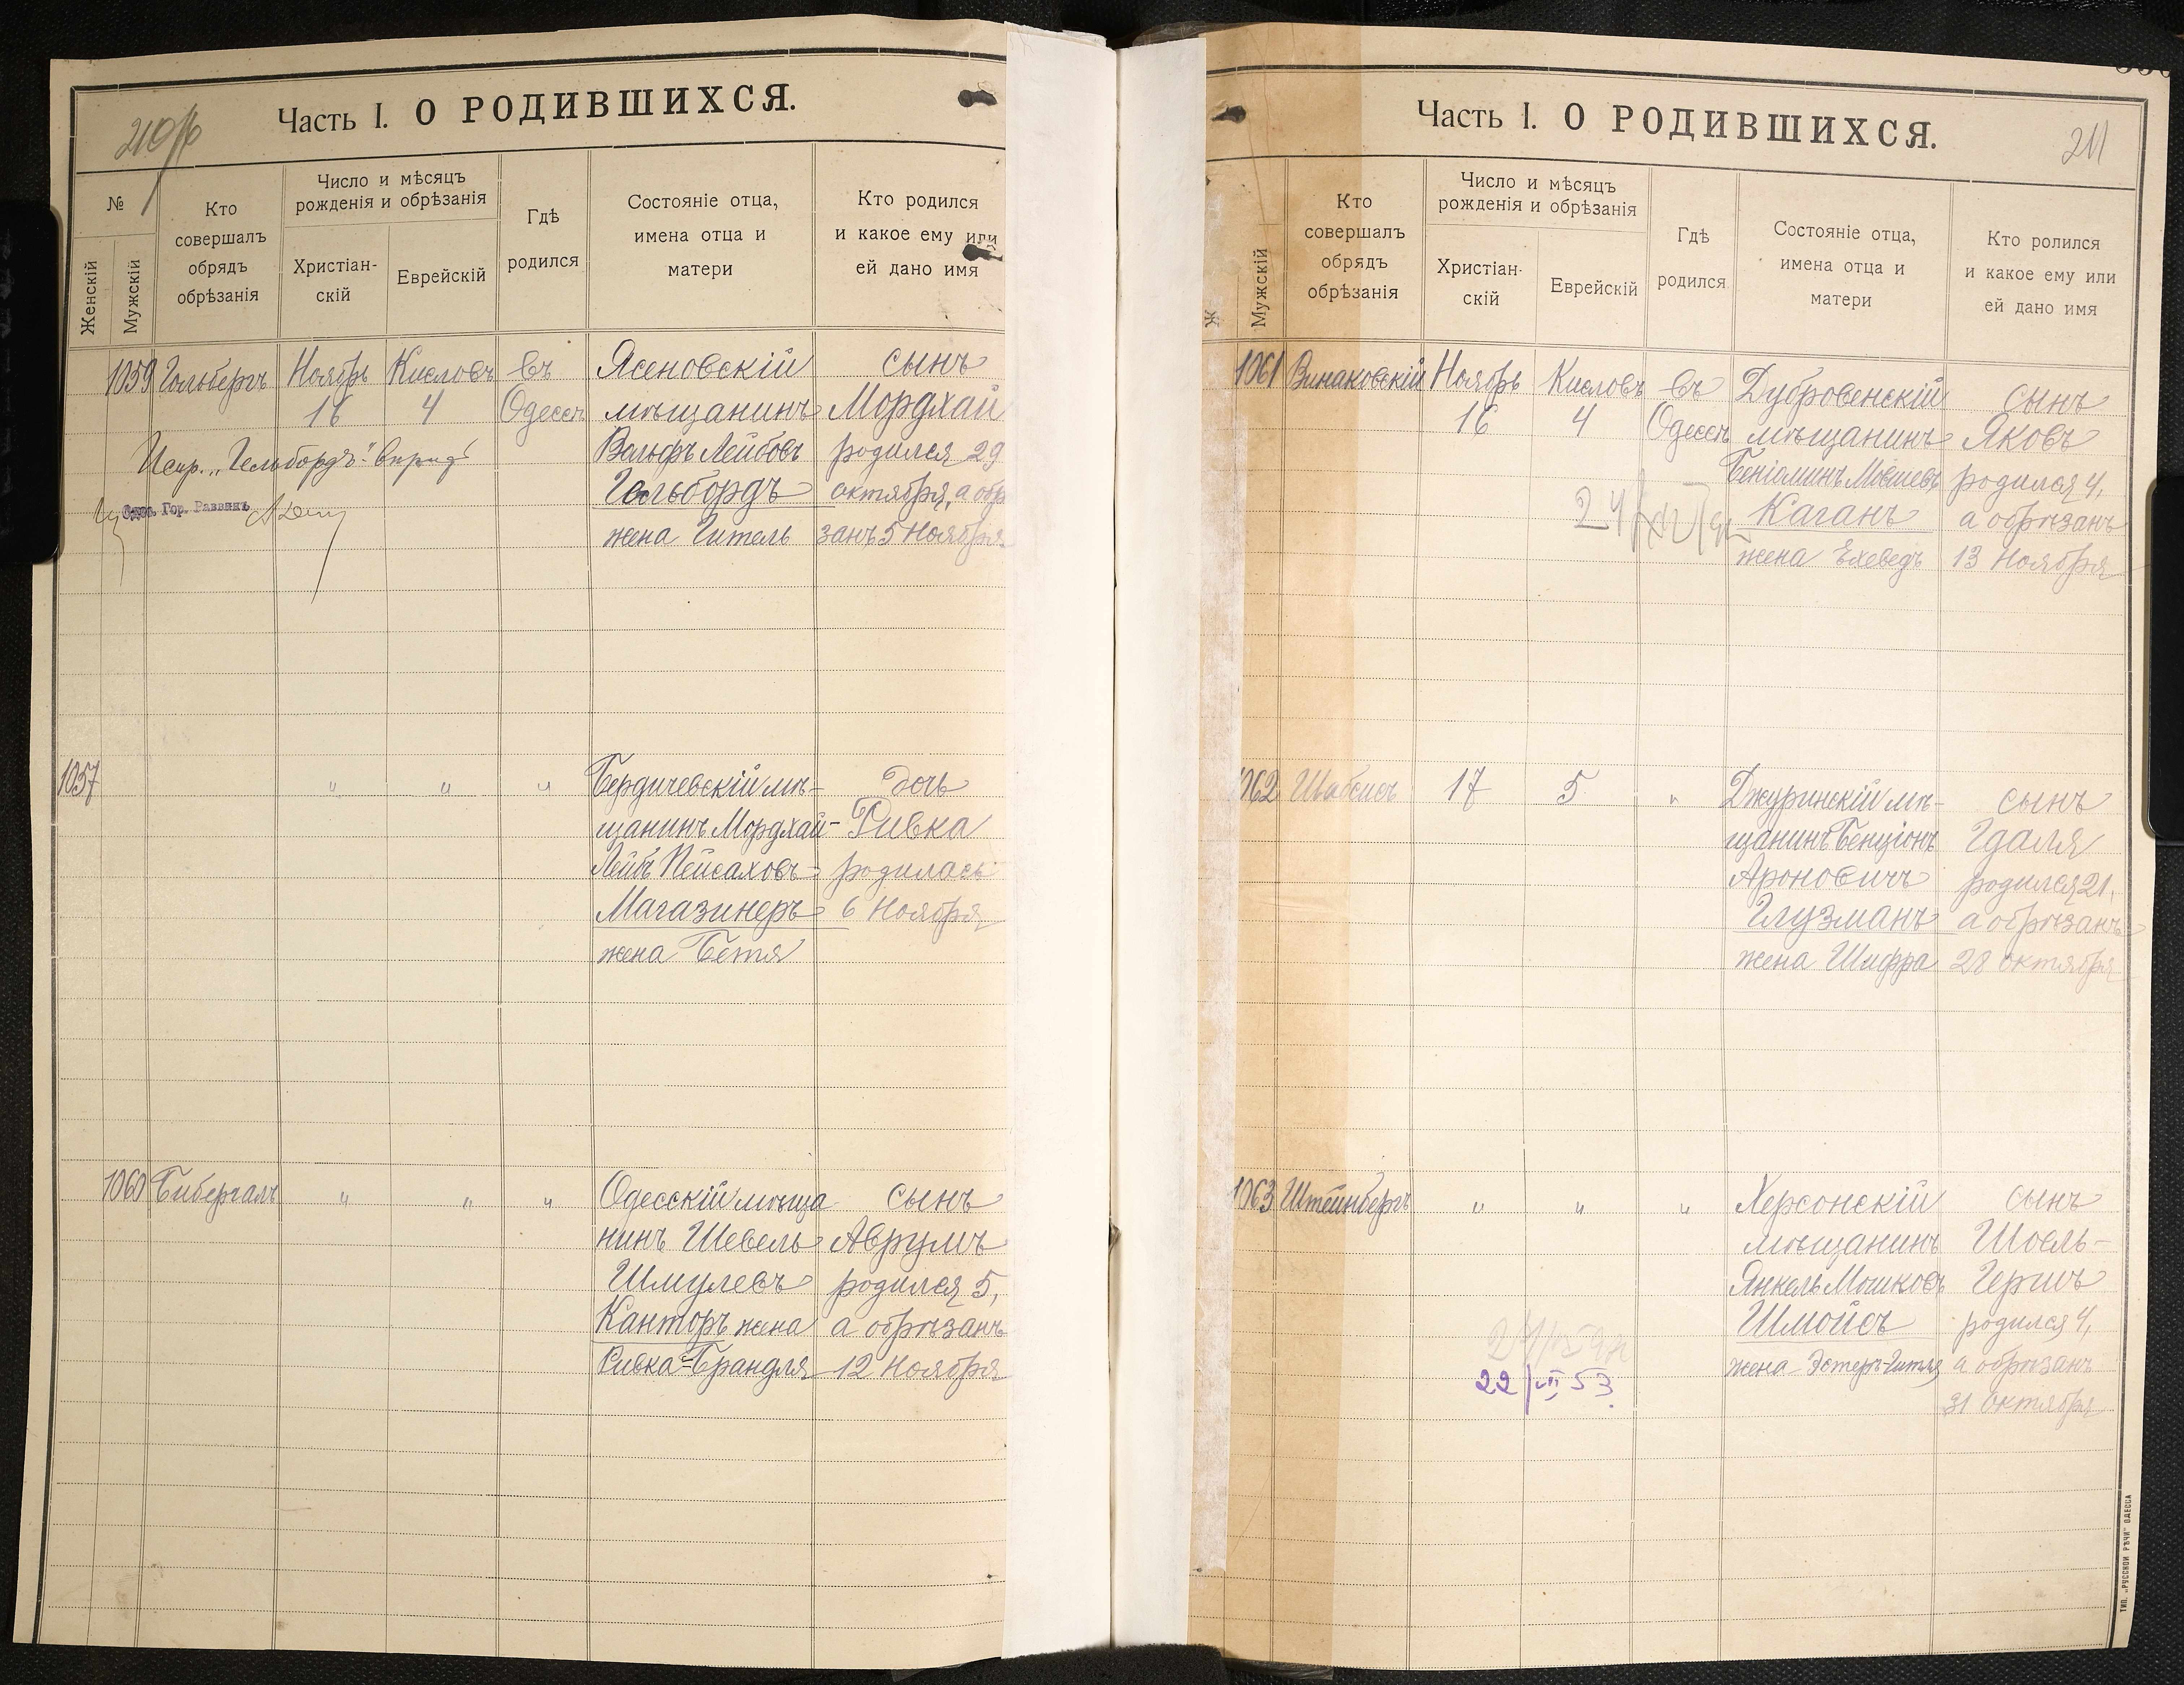 210 об
Часть I. О РОДИВШИХСЯ.
№
Женскій
Мужскій
Кто
совершалъ
обрядъ
обрѣзанія
Число и мѣсяцъ
рожденія и обрѣзанія
Христіан-
скій
Еврейскій
Гдѣ
родился
Состояніе отца,
имена отца и
матери
Кто родился
и какое ему или
ей дано имя
1059
Гольбергъ
Ноябрь
16
Кисловъ
4
въ
Одессѣ
Ясеновскій
мѣщанинъ
Вольфъ Лейбовъ
Гельбордъ
жена Гитель
сынъ
Мордхай
родился 29
октября, а обр
занъ 5 Ноября
Испр. „Гельбордъ“
Одес. Гор. Раввинъ
1057
"
"
"
Бердичевскій мѣ-
щанинъ Мордхай-
Лейбъ Пейсаховъ
Магазинеръ
жена Бетя
дочь
Ривка
родилась
6 Ноября
1060
Бибергалъ
"
"
"
Одесскій мѣща
нинъ Шевель
Шмулевъ
Канторъ жена
Ривка-Брандля
сынъ
Аврумъ
родился 5,
а обрѣзанъ
12 Ноября
Часть I. О РОДИВШИХСЯ.
211
Ж
Мужскій
Кто
совершалъ
обрядъ
обрѣзанія
Число и мѣсяцъ
рожденія и обрѣзанія
Христіан-
скій
Еврейскій
Гдѣ
родился
Состояніе отца,
имена отца и
матери
Кто ролился
и какое ему или
ей дано имя
1061
Винаковскій
Ноябрь
16
Кисловъ
4
въ
Одессѣ
Дубровенскій
мѣщанинъ
Беніаминъ Мовшевъ
Каганъ
жена Ехеведъ
сынъ
Яковъ
родился 4,
а обрѣзанъ
13 Ноября
1062
Шабсисъ
17
5
"
Джуринскій мѣ-
щанинъ Бенціонъ
Ароновичъ
Глузманъ
жена Шифра
сынъ
Гдаля
родился 21,
а обрѣзанъ
28 октября
1063
Штейнбергъ
"
"
"
Херсонскій
мѣщанинъ
Янкель Мошковъ
Шмойсъ
жена Эстеръ-Гитля
сынъ
Шоель-
Гершъ
родился 4,
а обрѣзанъ
31 октября
22/VII 53
ТИП. „РУССКОЙ РѢЧИ“ ОДЕССА